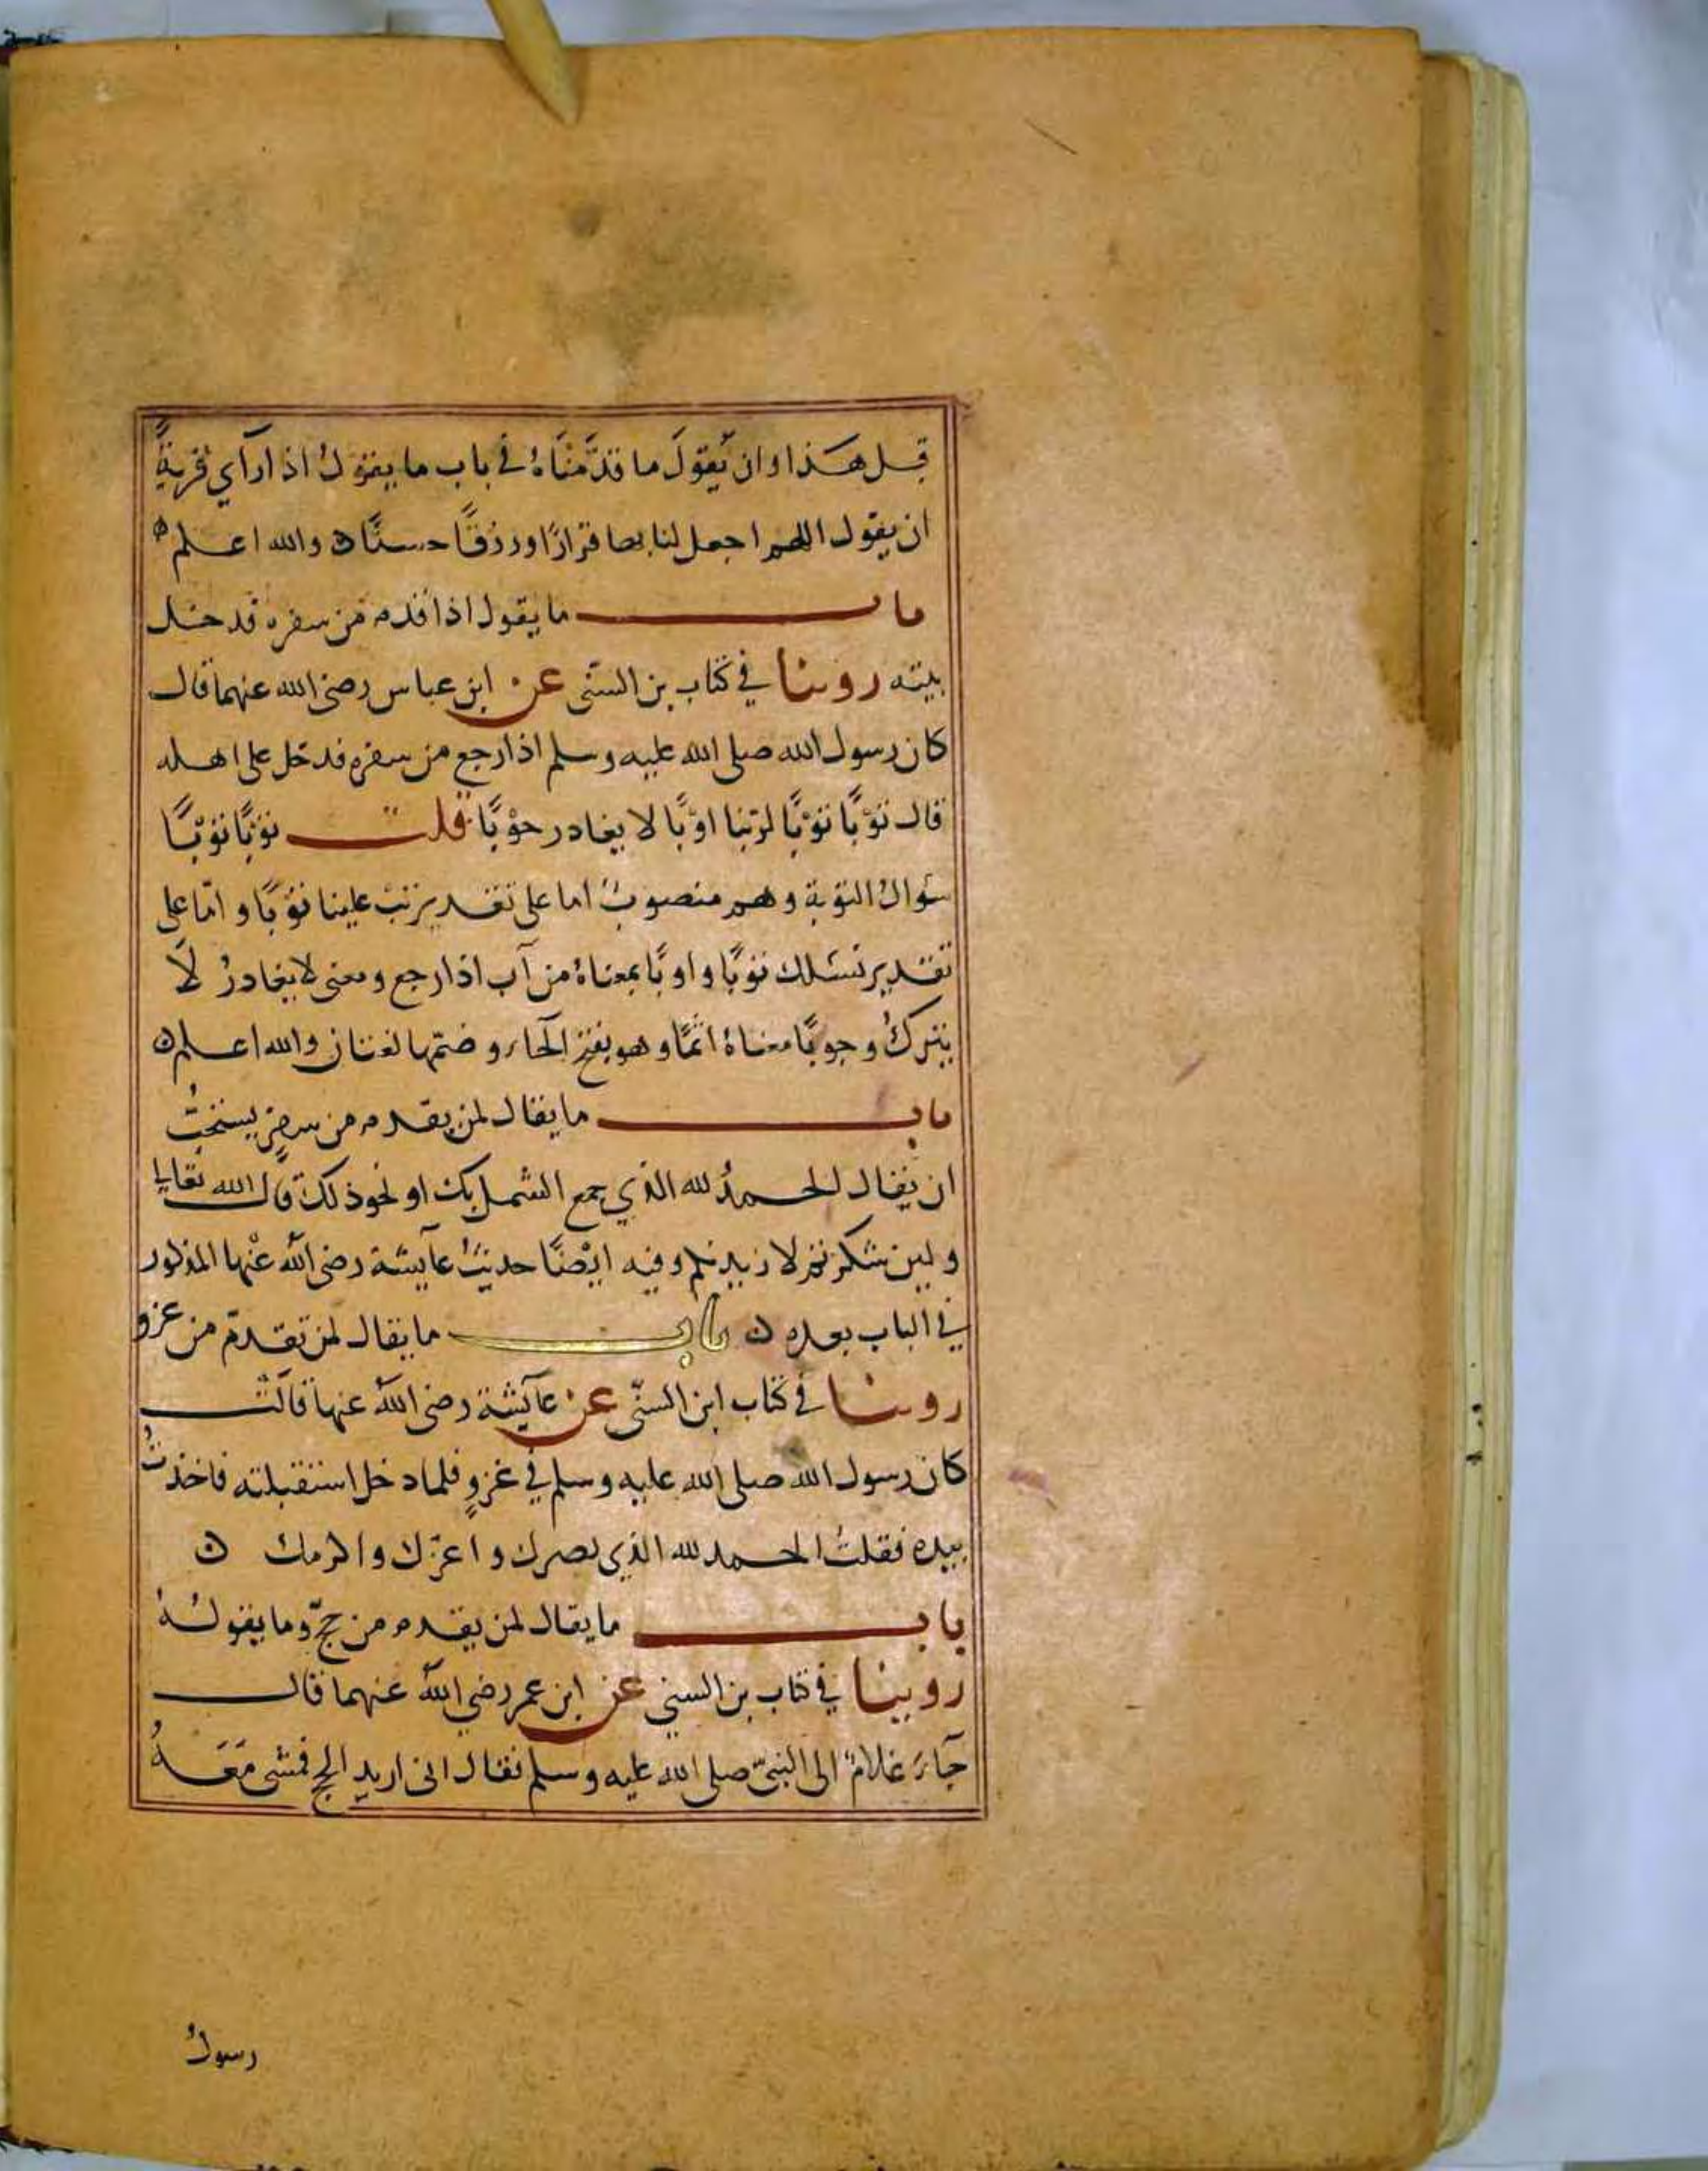 قبل هذا وان يقول ما قدمناه في باب ما يقول اذا رآي قرية
ان يقول اللهم اجعل لنا بها قرارًا ورزقًا حسنًا ه والله اعلم ه
باب ما يقول اذا قدم من سفره فدخل
بيته روينا في كتاب بن السنّى عن ابن عباس رضى الله عنهما قال
كان رسول الله صلى الله عليه وسلم اذا رجع من سفره فدخل على اهله
قال توبًا توبًا لربنا اوبًا لا يغادر حوبًا قلت توبًا توبًا
سؤال التوبة وهو منصوب اما على تقدير تب علينا توبًا واما على
تقدير نسئلك توبًا واوبًا بمعناه من آب اذا رجع ومعنى لا يغادر لا
يترك وحوبًا معناه اثمًا وهو بفتح الحاء وضمها لغتان والله اعلم ن
باب ما يقال لمن يقدم من سفر يستحب
ان يقال الحمد لله الذي جمع الشمل بك او نحو ذلك قال الله تعالى
ولين شكرتم لازيدنكم وفيه ايضًا حديث عآيشة رضى الله عنها المذكور
في الباب بعده ن باب ما يقال لمن تقدم من غزو
روينا في كتاب ابن السنّى عن عآيشة رضى الله عنها قالت
كان رسول الله صلى الله عليه وسلم في غزو فلما دخل استقبلته فاخذت
بيده فقلت الحمد لله الذي نصرك واعزك واكرمك ن
باب ما يقال لمن يقدم من حج وما يقوله
روينا في كتاب بن السني عن ابن عمر رضي الله عنهما قال
جآء غلام الى النبى صلى الله عليه وسلم فقال انى اريد الحج فمشى معه
رسول